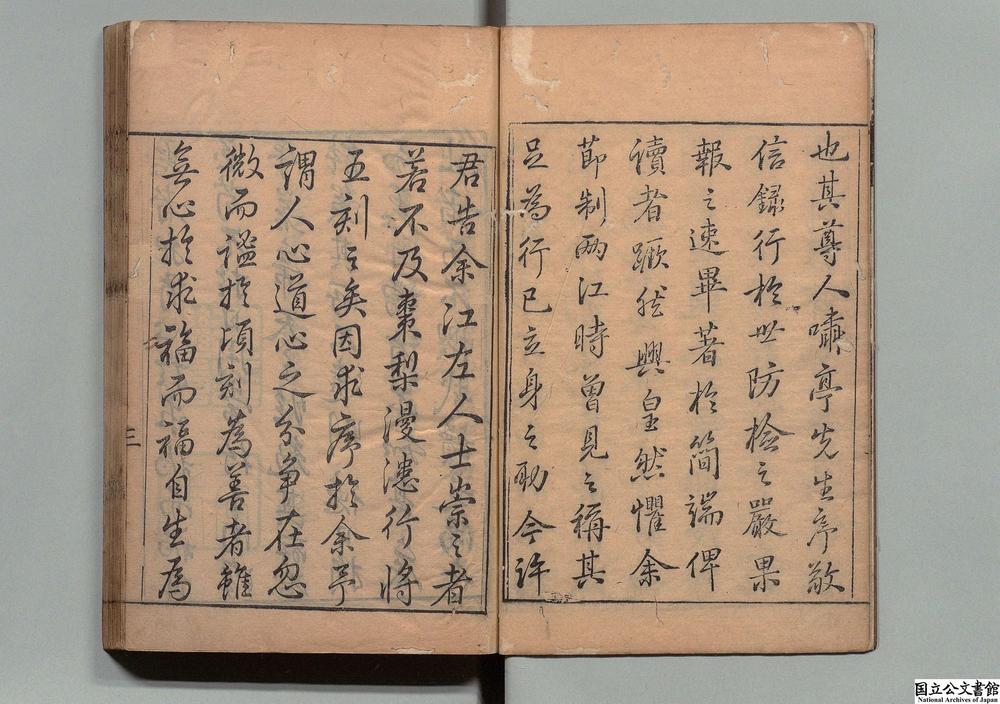 也其尊人嘯亭先生序敬
信録行於世防檢之嚴果
報之速畢著於簡端俾
讀者蹶然興皇然懼余
節制兩江時曽見之稱其
足為行已立身之助今許
君告余江左人士崇之者
若不及棗梨漫漶行將
五刻之矣因求序於余予
謂人心道心之分爭在忽
微而謚於頃刻為善者雖
無心於求福而福自生為
三
国立公文書館
National Archives of Japan